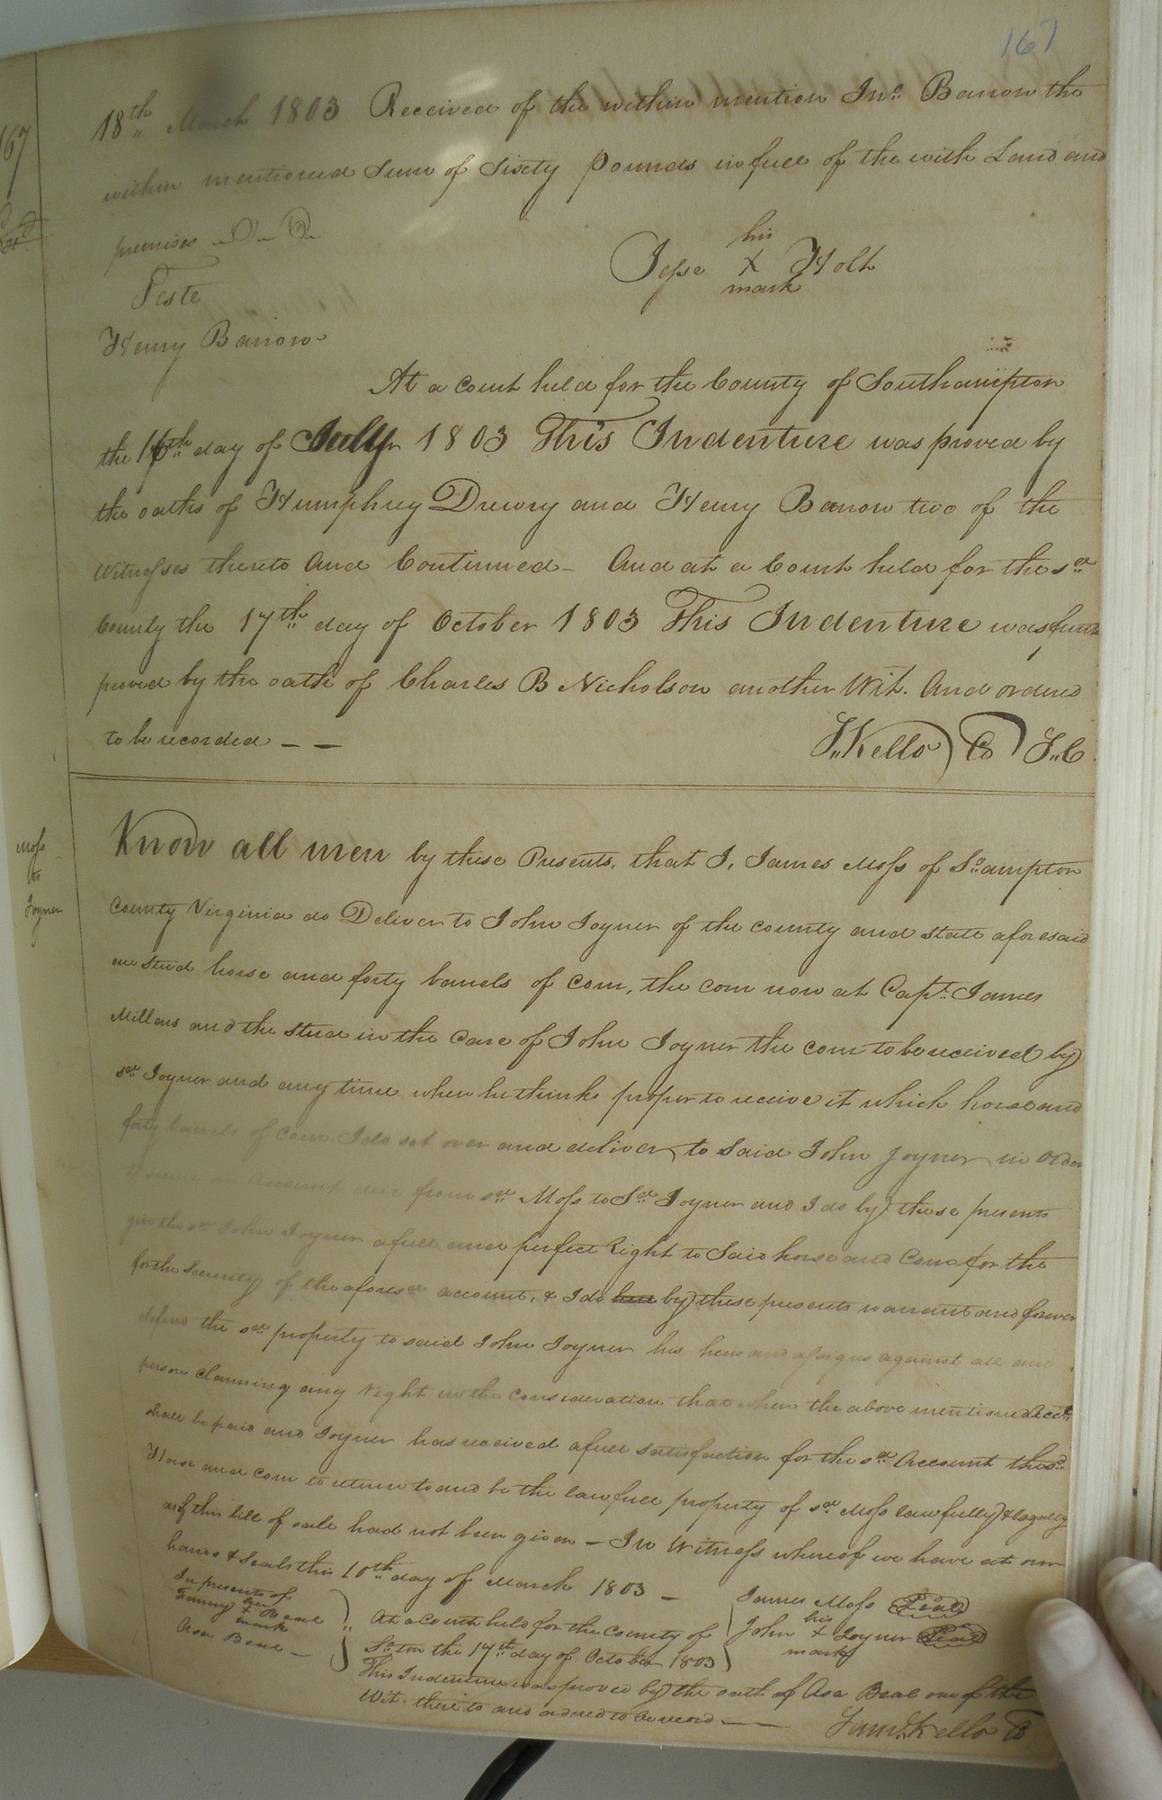 167
18th March 1803 Received of the within mention Jno. Barrow the
within mentioned Sum of Sixty pounds in full of the with Land and
premises
Jesse his X mark Holt
Teste
Henry Barrow
At a Court held for the County of Southampton
the 16th day of July 1803 This Indenture was proved by
the oaths of Humphrey Drewry and Henry Barrow two of the
Witnesses thereto And Continued – And at a Court held for the sd
County the 17th day of October 1803 This Indenture was furth
proved by the oath of Charles B Nicholson another Wit. And ordered
to be recorded – –
S. Kello Co S.C.
167
Moss
to
Joyner
Know all men by these Presents, that I, James Moss of So.ampton
County Virginia do Deliver to John Joyner of the county and state aforesaid
one stud horse and forty barrels of corn, the corn now at Capt. James
Millars and the stud in the Care of John Joyner the corn to be received by
sd Joyner and any time when he thinks proper to receive it which horse and
forty barrels of corn I do set over and deliver to said John Joyner in order
amount due from sd Moss to Sd Joyner and I do by these presents
give the sd John Joyner a full and perfect Right to Said horse and Corn for the
for the Security of the aforesd account, & I do by these presents warrant and forever
defend the sd property to said John Joyner his heirs and assigns against all and
person claiming any right in the consideration that when the above mentioned Acct
shall be paid and Joyner has received a full satisfaction for the sd Account the sd
Horse and corn to return to and be the lawfull property of sd Moss lawfully & legally
as if this bill of sale had not been given – In Witness whereof we have set our
hands & Seals this 10th day of March 1803 –
In presents of
her + mark Beal
Asa Beal –
James Moss Seal
John his + mark Joyner Seal
At a Court held for the County of
So.ton the 17th day of October 1803
This Indenture was proved by the oath of Asa Beal one of the
Wit. thereto and ordered to be record –
Saml. Kello Co